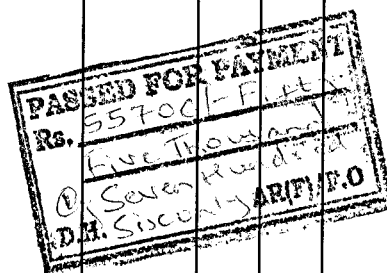 PASSED FOR PAYMENT
Rs. 55706/- Fifty
Five Thousand
Seven Hundred
D.H. Six only AR(F)/F.O